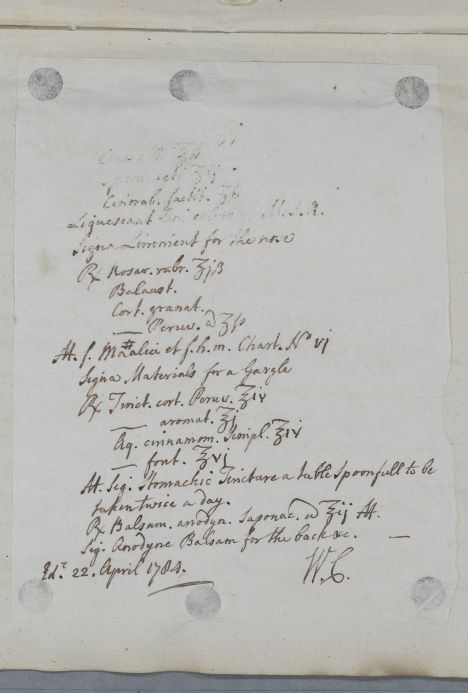 Cinnab. factit. ʒß
Liquescant M. s. A.
Signa Liniment for the nose
℞ Rosar. rubr. ℥jß
Balaust.
Cort. granat.
— Peruv. a ℥ß
M. f. Mat et f. h. m. Chart. No vj
Signa Materials for a Gargle
℞ Tinct. cort. Peruv. ℥iv
— aromat. ℥j
Aq. cinnamom. simpl. ℥iv
— font. ℥vj
M. Sig. Stomachic Tincture a table spoonfull to be
taken twice a day.
℞ Balsam. anodyn. Saponac. a ℥ij M.
Sig. Anodyne Balsam for the back &c. —
Edr. 22. April 1784.
W. C.